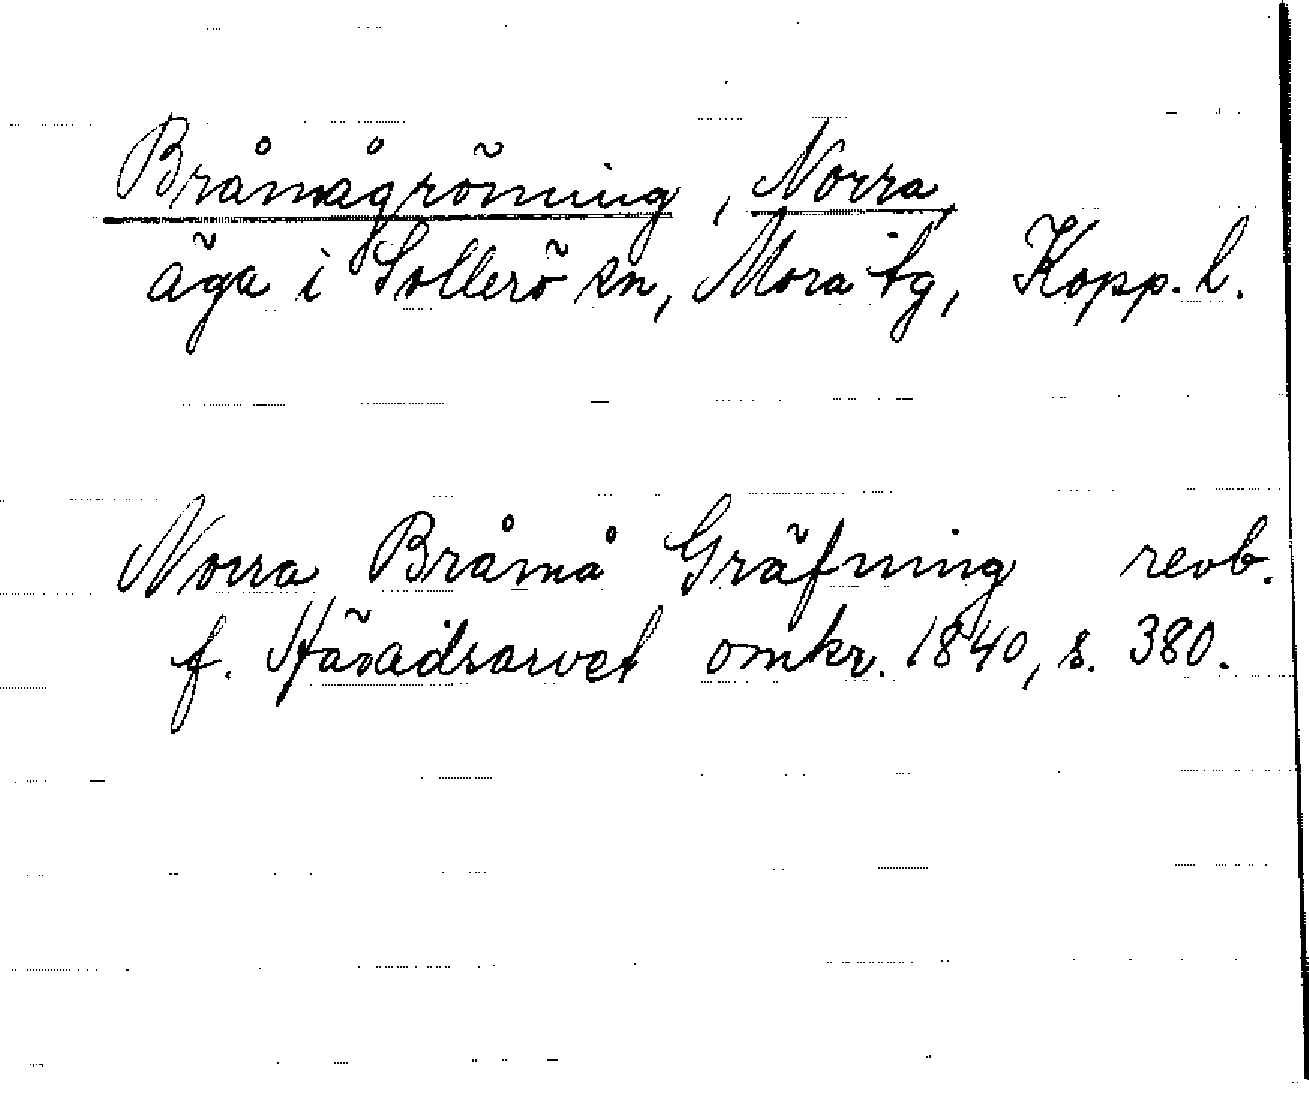 Bråmågröning, Norra
äga i Sollerö sn, Mora tg, Kopp. l.
Norra Bråmå Gräfning revb.
f. Häradsarvet omkr. 1840, s. 380.